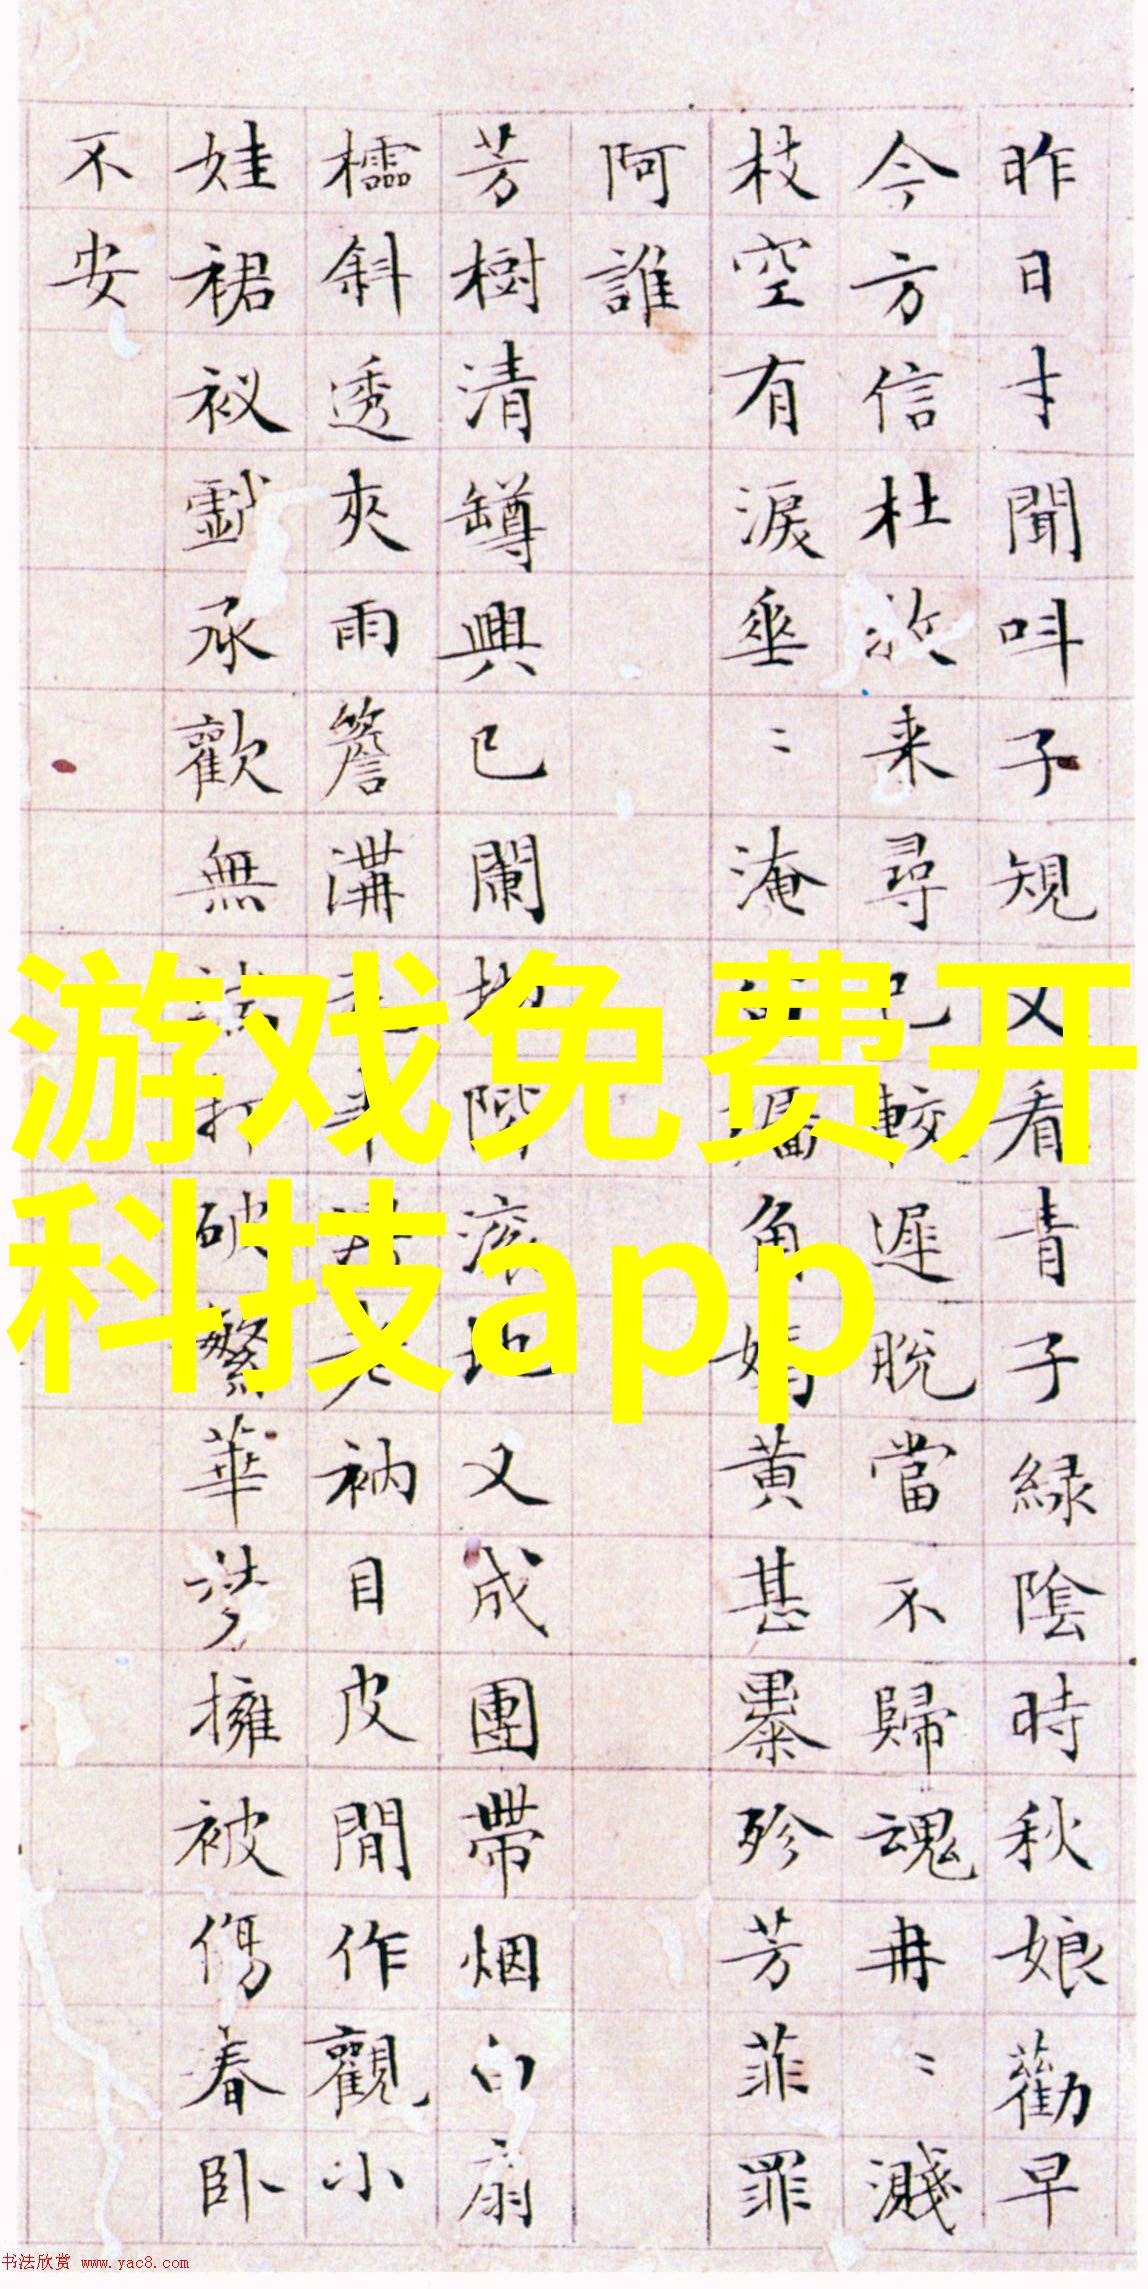 昨日才聞叫子規又看青子緑陰時秋娘勸早
今方信杜牧来尋已較遲脫當不歸魂冉〻濺
枝空有淚垂〻淹角嫣黄甚纍殄芳菲罪
阿誰
芳樹清罇興已闌階滾地又成團帶烟白扇
櫺斜透夾雨簷溝衲目皮閒作觀小
娃裙衩戲承歡無法打破繁華夢擁被傷春臥
不安
游戏免费开
科技app
书法欣赏 www.yac8.com